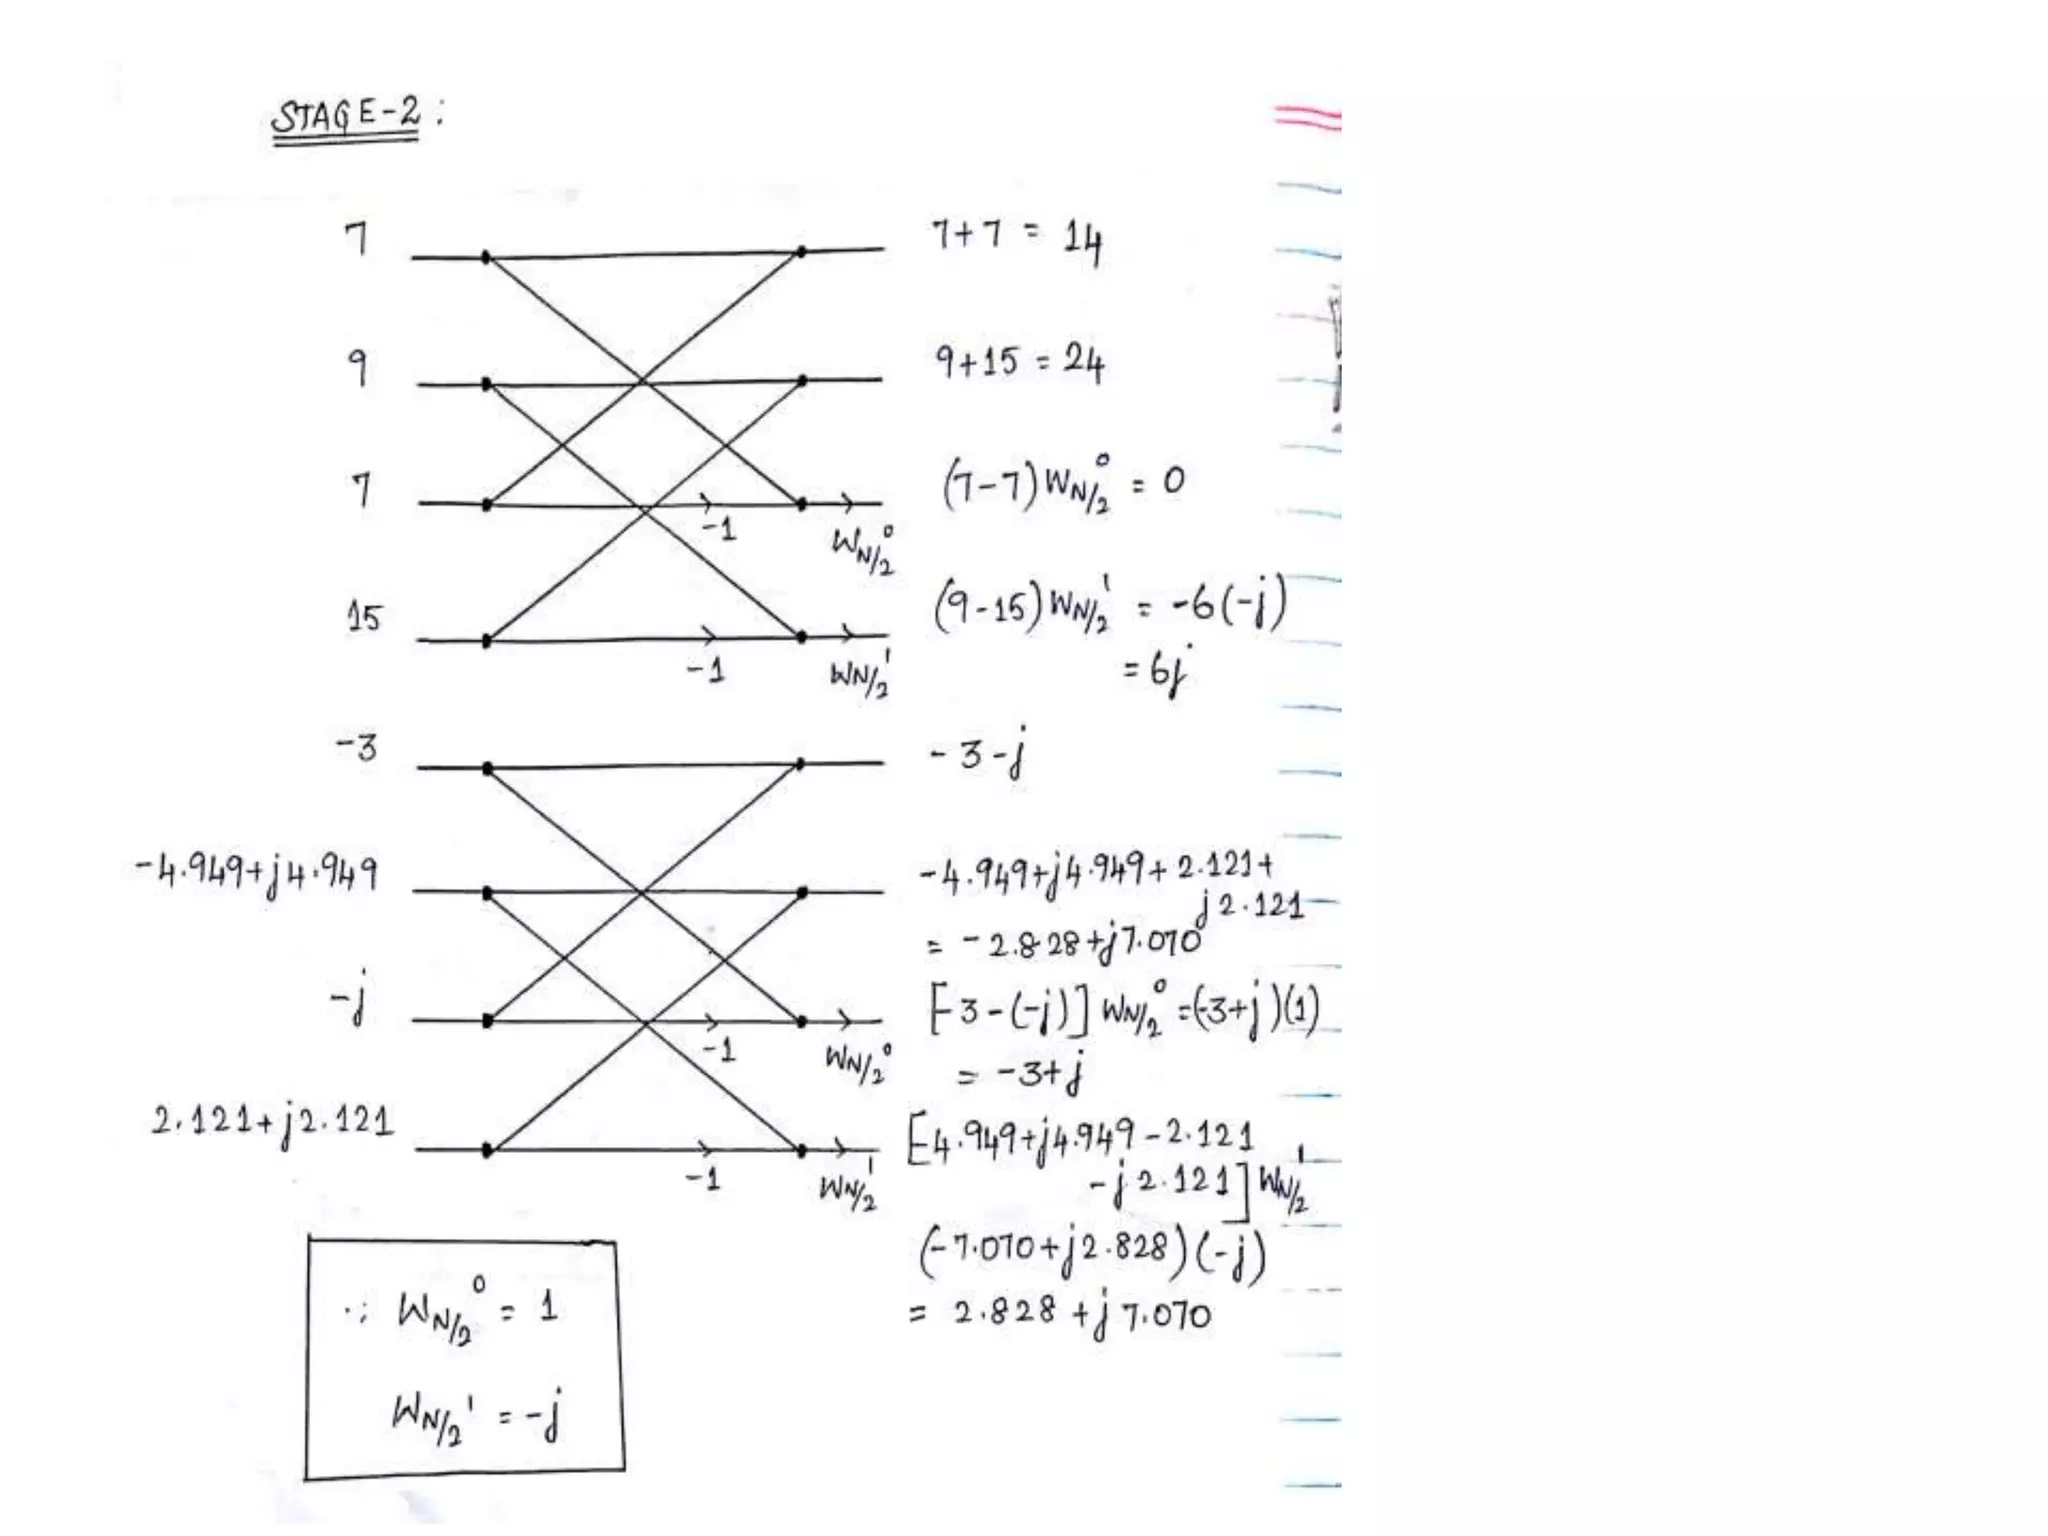 STAGE-2 :
7
7+7 = 14
9
9+15 = 24
7
-1
W_{N/2}^0
(7-7)W_{N/2}^0 = 0
15
-1
W_{N/2}^1
(9-15)W_{N/2}^1 = -6(-j)
= 6j
-3
-3-j
-4.949+j4.949
-4.949+j4.949+2.121+
j2.121
= -2.828+j7.070
-j
-1
W_{N/2}^0
[-3-(-j)] W_{N/2}^0 = (-3+j)(1)
= -3+j
2.121+j2.121
-1
W_{N/2}^1
[-4.949+j4.949-2.121
-j2.121] W_{N/2}^1
(-7.070+j2.828)(-j)
= 2.828+j7.070
∵ W_{N/2}^0 = 1
W_{N/2}^1 = -j